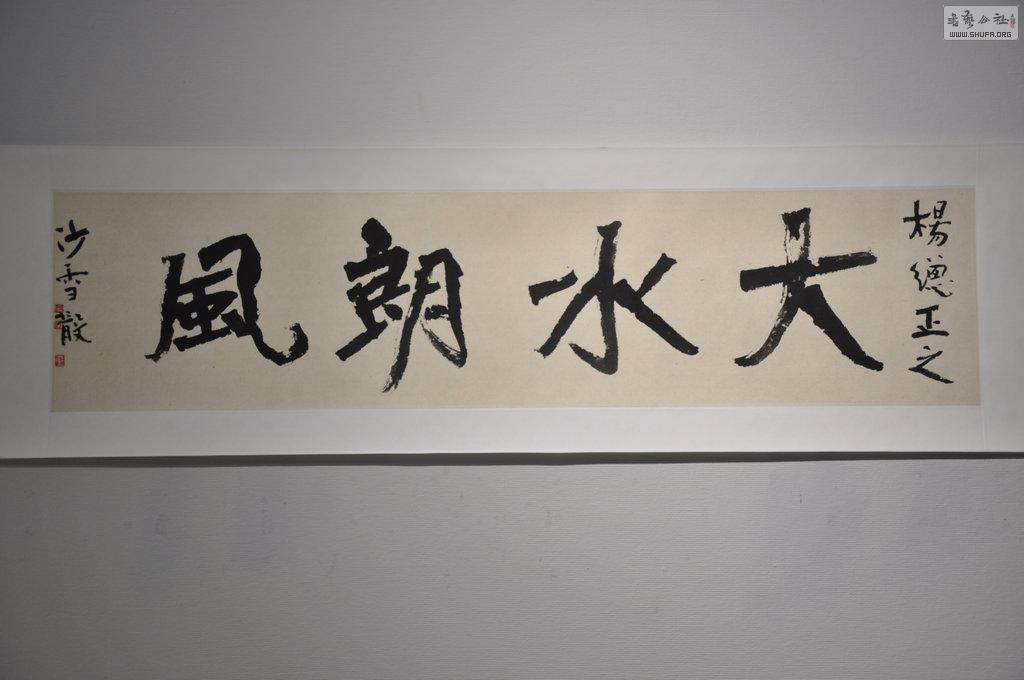 楊總正之
大水朗風
沙雪散
書藝公社
WWW.SHUFA.ORG